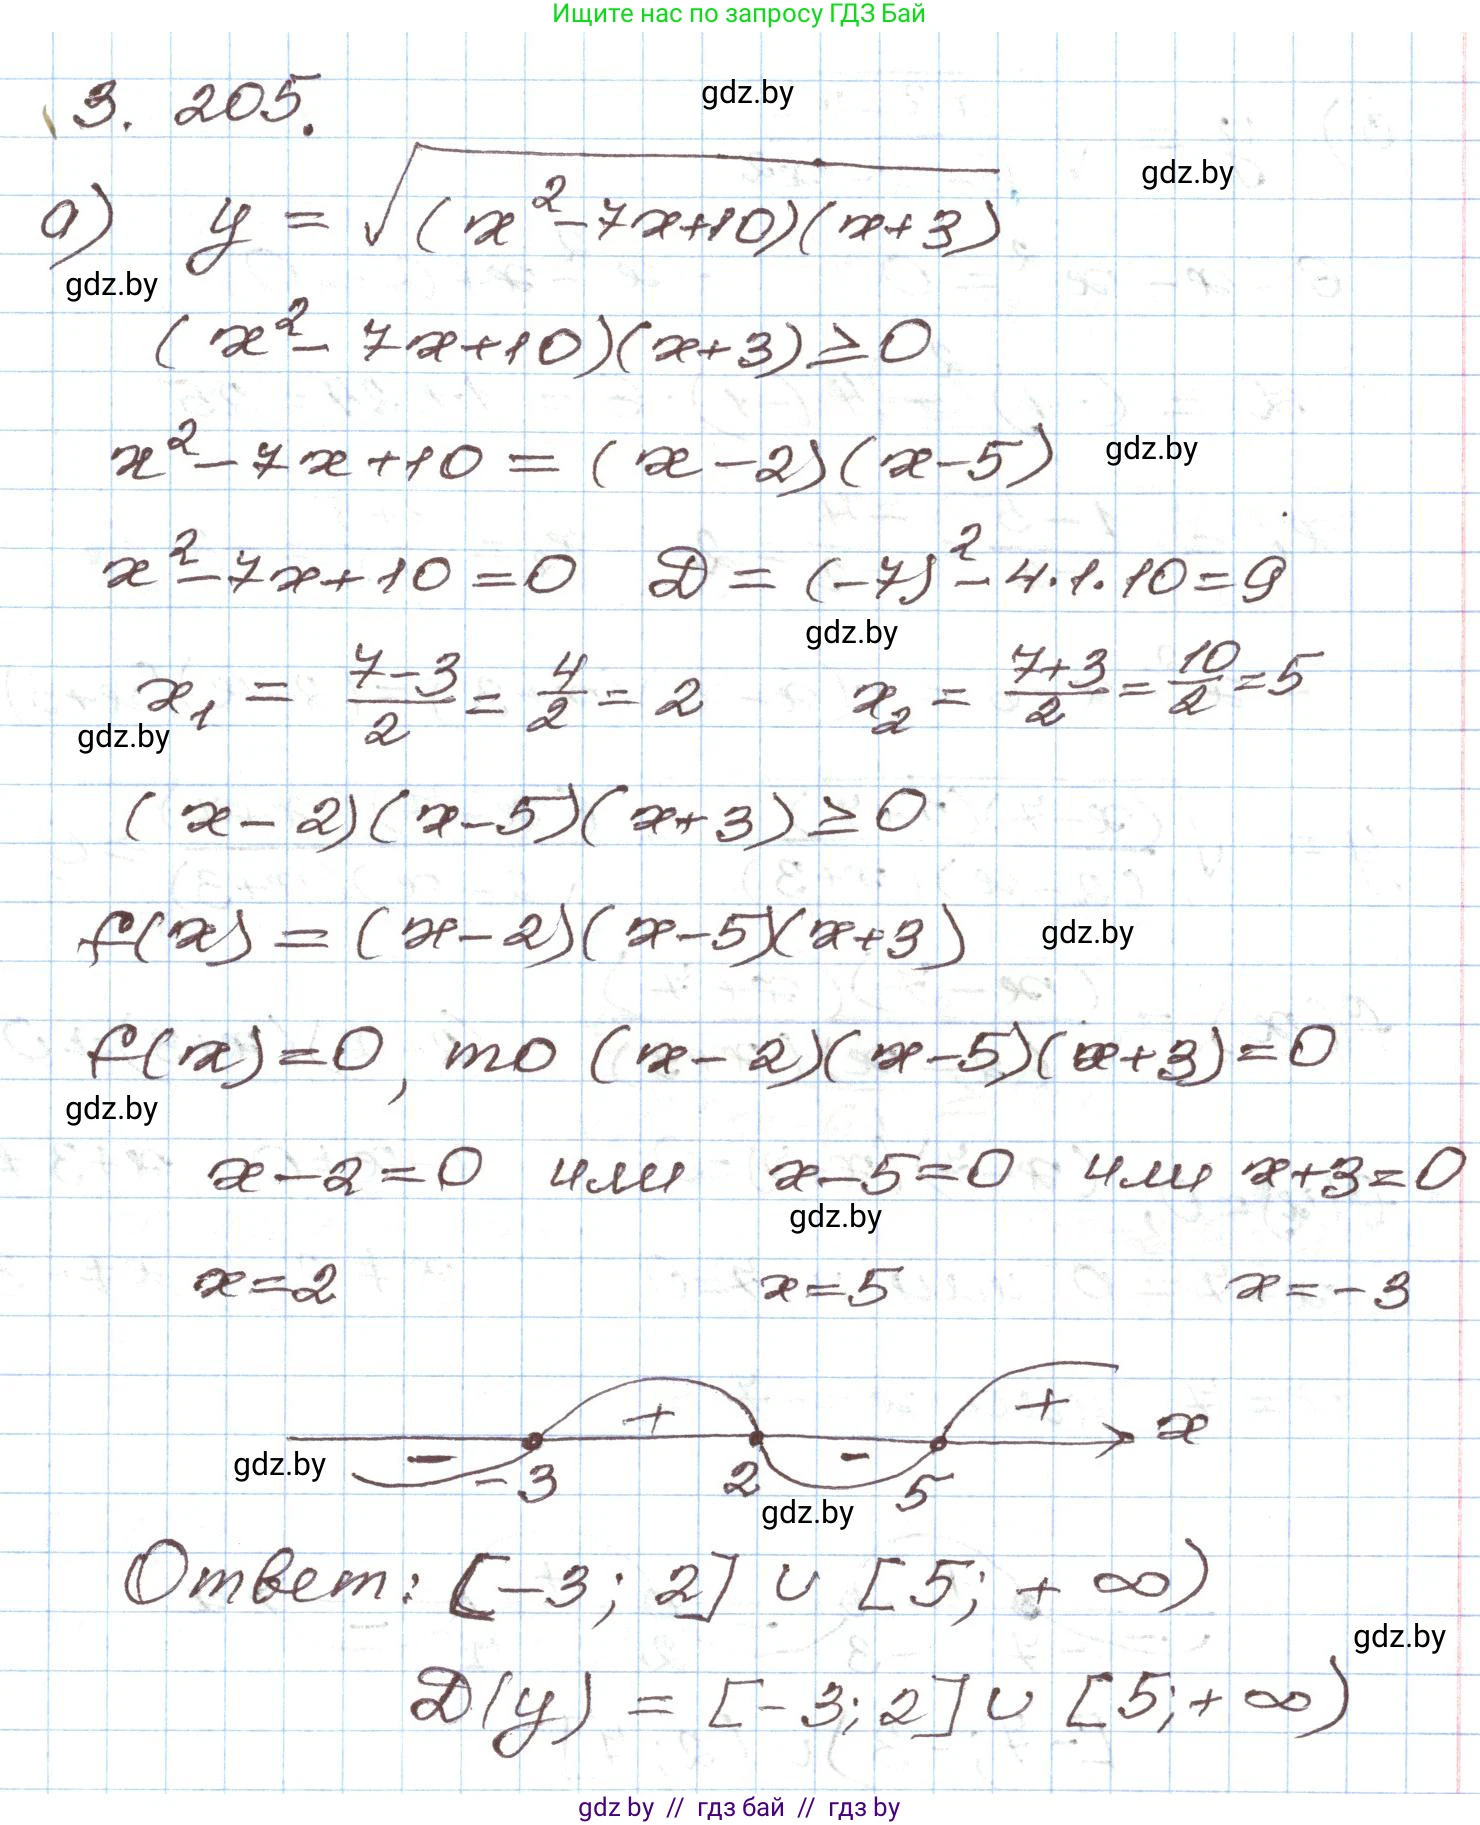 Ищите нас по запросу ГДЗ Бай
3. 205.
gdz.by
gdz.by
а) y = √(x² - 7x + 10)(x + 3)
gdz.by
(x² - 7x + 10)(x + 3) ≥ 0
x² - 7x + 10 = (x - 2)(x - 5)
gdz.by
x² - 7x + 10 = 0 D = (-7)² - 4·1·10 = 9
gdz.by
x₁ = (7-3)/2 = 4/2 = 2 x₂ = (7+3)/2 = 10/2 = 5
gdz.by
(x - 2)(x - 5)(x + 3) ≥ 0
f(x) = (x - 2)(x - 5)(x + 3)
gdz.by
f(x) = 0, то (x - 2)(x - 5)(x + 3) = 0
gdz.by
x - 2 = 0 или x - 5 = 0 или x + 3 = 0
gdz.by
x = 2 x = 5 x = -3
+ + x
gdz.by - -
-3 2 5
gdz.by
Ответ: [-3; 2] ∪ [5; +∞)
gdz.by
D(y) = [-3; 2] ∪ [5; +∞)
gdz by // гдз бай // гдз by